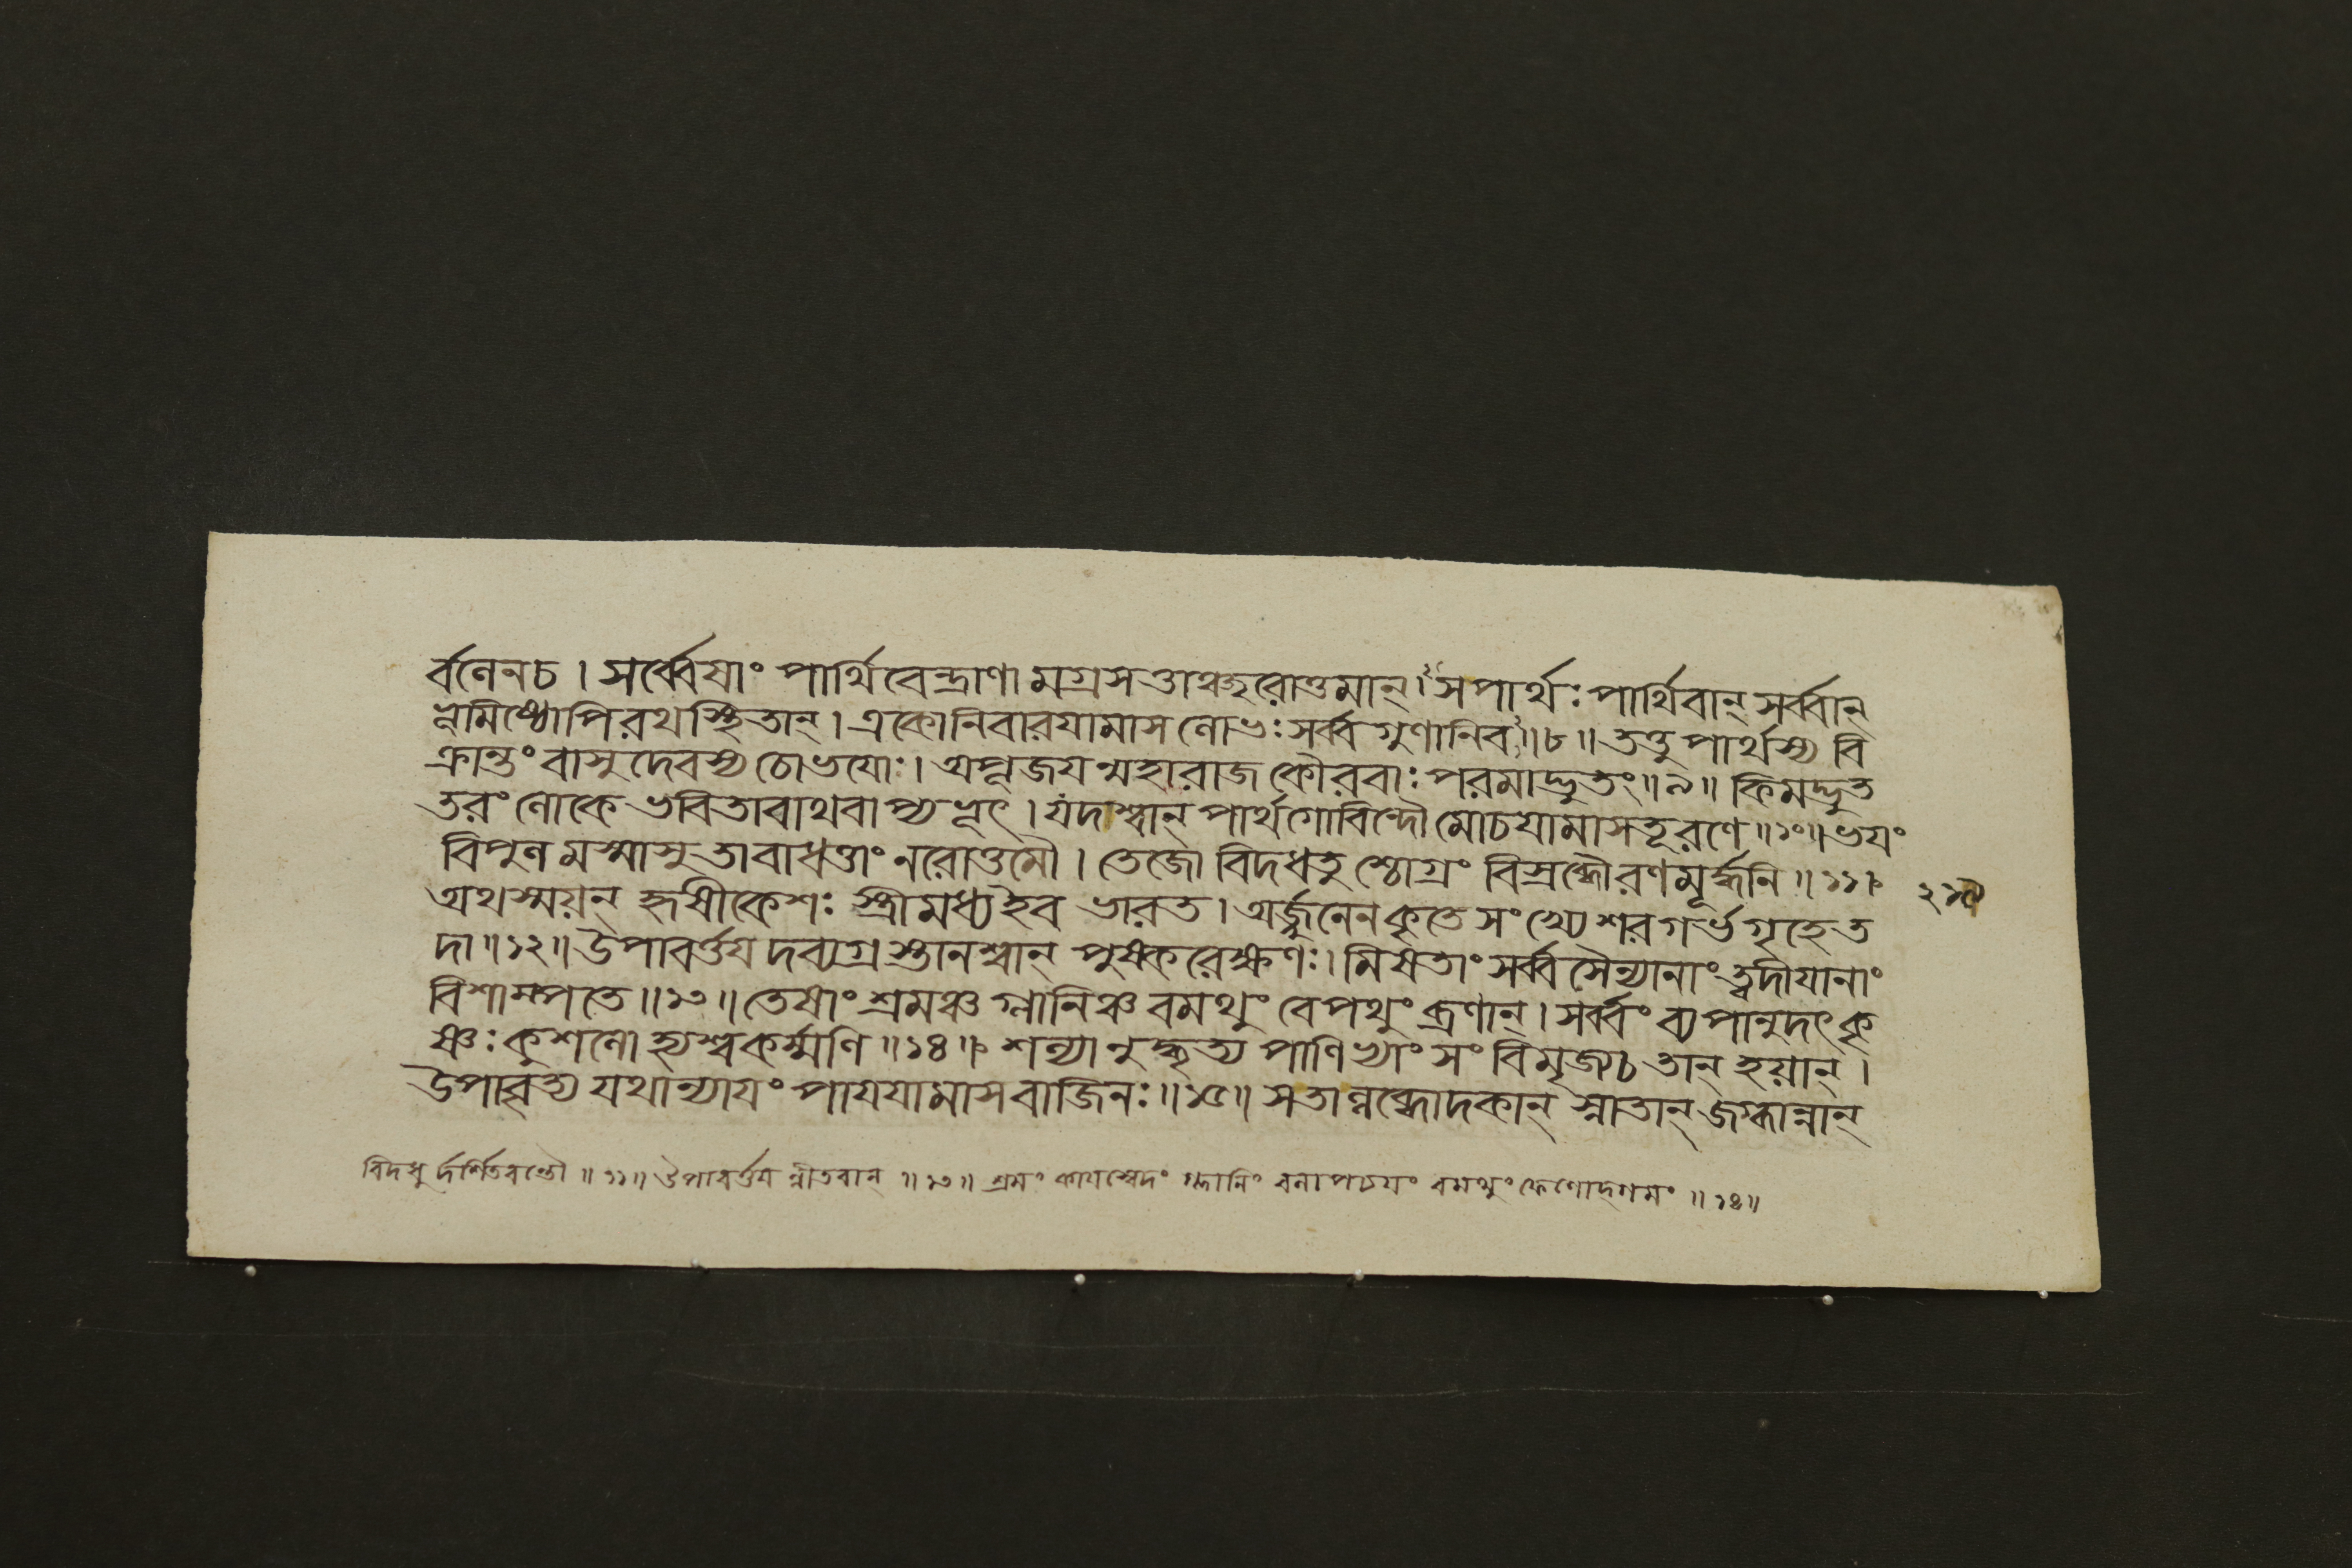 র্বণেনচ । সর্ব্বেষাং পার্থিবেন্দ্রাণামগ্রসত্তাঞ্ছরোত্তমান্ । সপার্থঃ পার্থিবান্ সর্ব্বান্
ভূমিস্থোপিরথস্থিতান্ । একোনিবারযামাস লোভঃ সর্ব্বগুণানিব ॥৮॥ তত্তু পার্থস্য বি
ক্রান্তং বাসুদেবস্য চোভযোঃ । অপূজযন্মহারাজ কৌরবাঃ পরমাদ্ভুতং ॥৯॥ কিমদ্ভুত
তরং লোকে ভবিতাবাথবাপ্যভূৎ । যদশ্বান্ পার্থগোবিন্দৌ মোচযামাসতূরণে ॥১০॥ ভযং
বিপুলমস্মাসু তাবাধত্তাং নরোত্তমৌ । তেজো বিদধতুশ্চোগ্রং বিস্রব্ধৌরণমূর্দ্ধনি ॥১১॥
২১৫
অথস্ময়ন্ হৃষীকেশঃ স্ত্রীমধ্যইব ভারত । অর্জ্জুনেনকৃতে সংখ্যে শরগর্ভগৃহেত
দা ॥১২॥ উপাবর্ত্তযদব্যগ্রস্তানশ্বান্ পুষ্করেক্ষণঃ । মিষতাং সর্ব্বসৈন্যানাং ত্বদীযানাং
বিশাম্পতে ॥১৩॥ তেষাং শ্রমঞ্চ গ্লানিঞ্চ বমথুং বেপথুং ব্রণান্ । সর্ব্বং ব্যপানুদৎকৃ
ষ্ণঃ কুশলো হ্যশ্বকর্ম্মণি ॥১৪॥ শল্যানুদ্ধৃত্য পাণিভ্যাং সংবিমৃজ্যচ তান্ হয়ান্ ।
উপাবৃত্য যথান্যাযং পাযযামাসবাজিনঃ ॥১৫॥ সতাল্লব্ধোদকান্ স্নাতান্ জগ্ধান্নান্
বিদধু র্দর্শিতবন্তৌ ॥১১॥ উপাবর্ত্তয ন্নীতবান্ ॥১৩॥ শ্রমং কাযস্বেদং গ্লানিং বলাপচযং বমথুং ফেণোদ্গমং ॥১৪॥